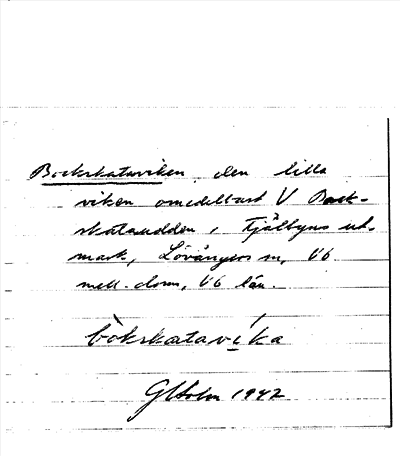 Bockskataviken, den lilla
viken omedelbart V Bock-
skataudden, Fjälbyns ut-
mark, Lövångers sn, Vb
mell. dom, Vb län.
bòkskatavíka
G Holm 1942